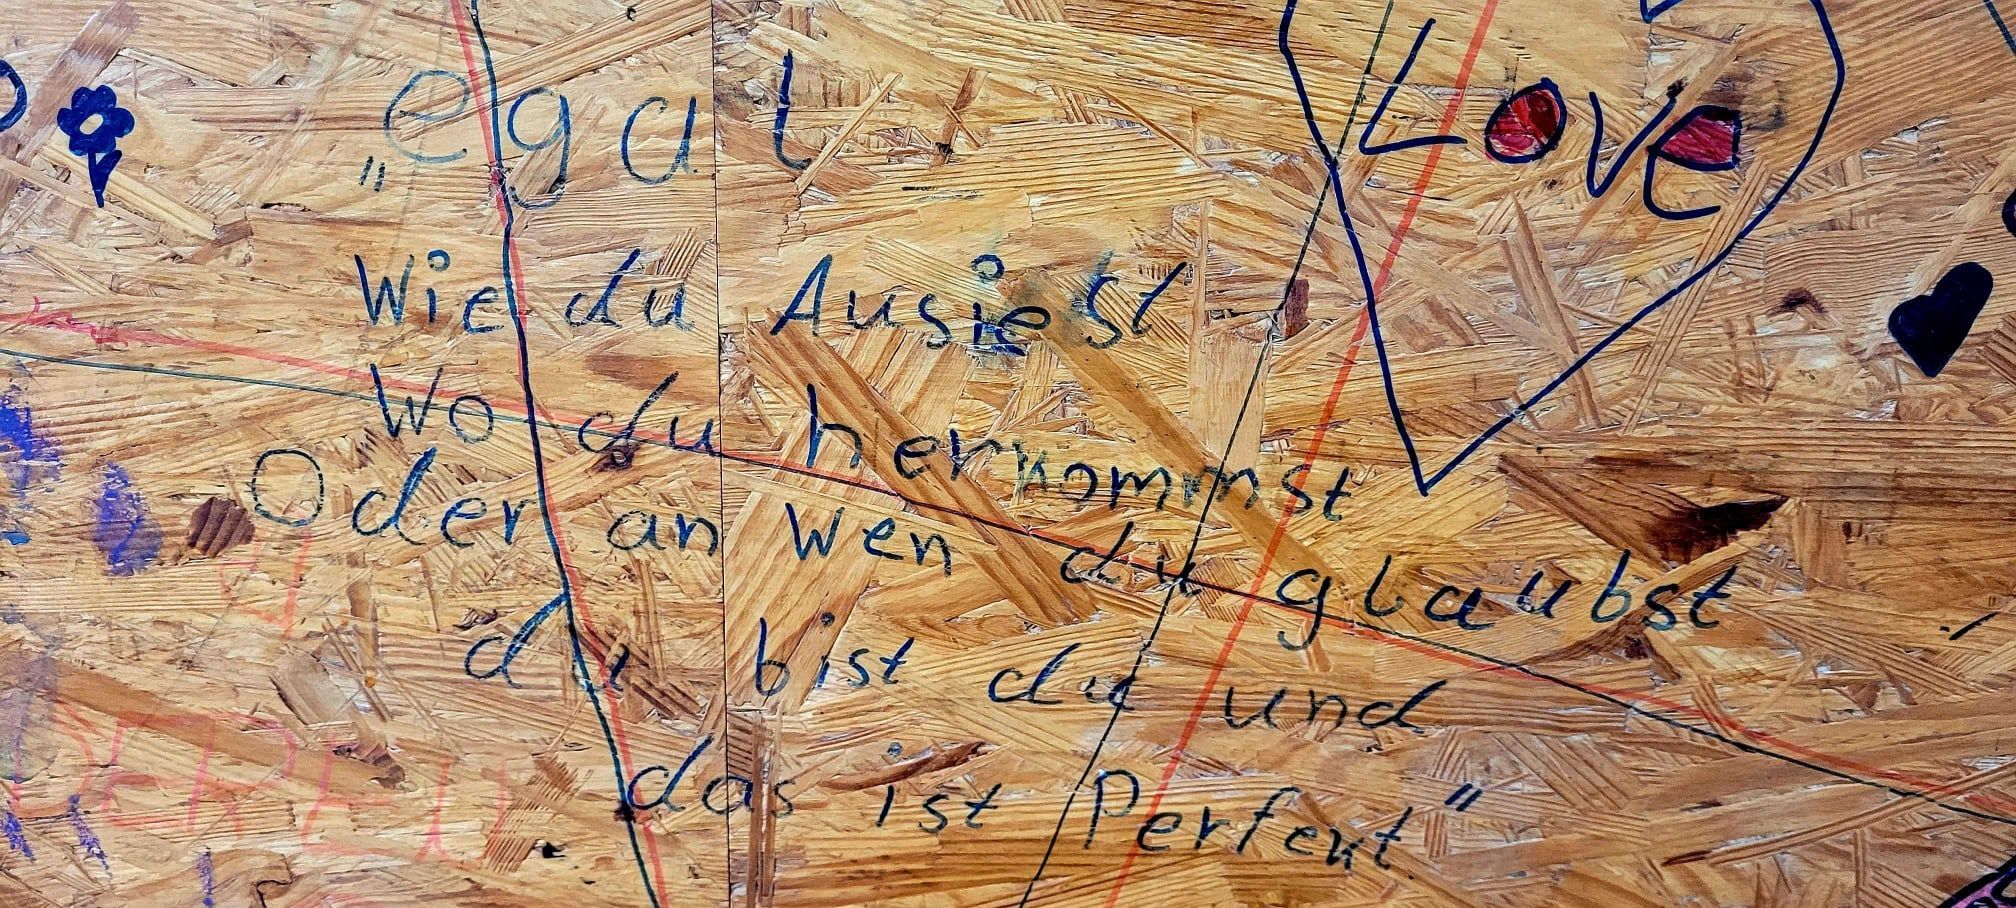 „egal
Love
Wie du Ausiest
Wo du herkommst
Oder an wen du glaubst
du bist du und
das ist Perfekt"